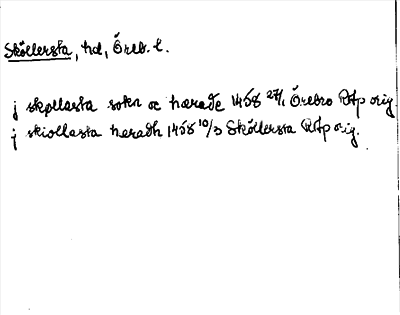 Sköllersta, hd, Örebr. l.
j skøllasta sokn oc hærade 1458 27/1 Örebro RAp orig.
j skiollasta hæradh 1458 10/3 Sköllersta RAp orig.